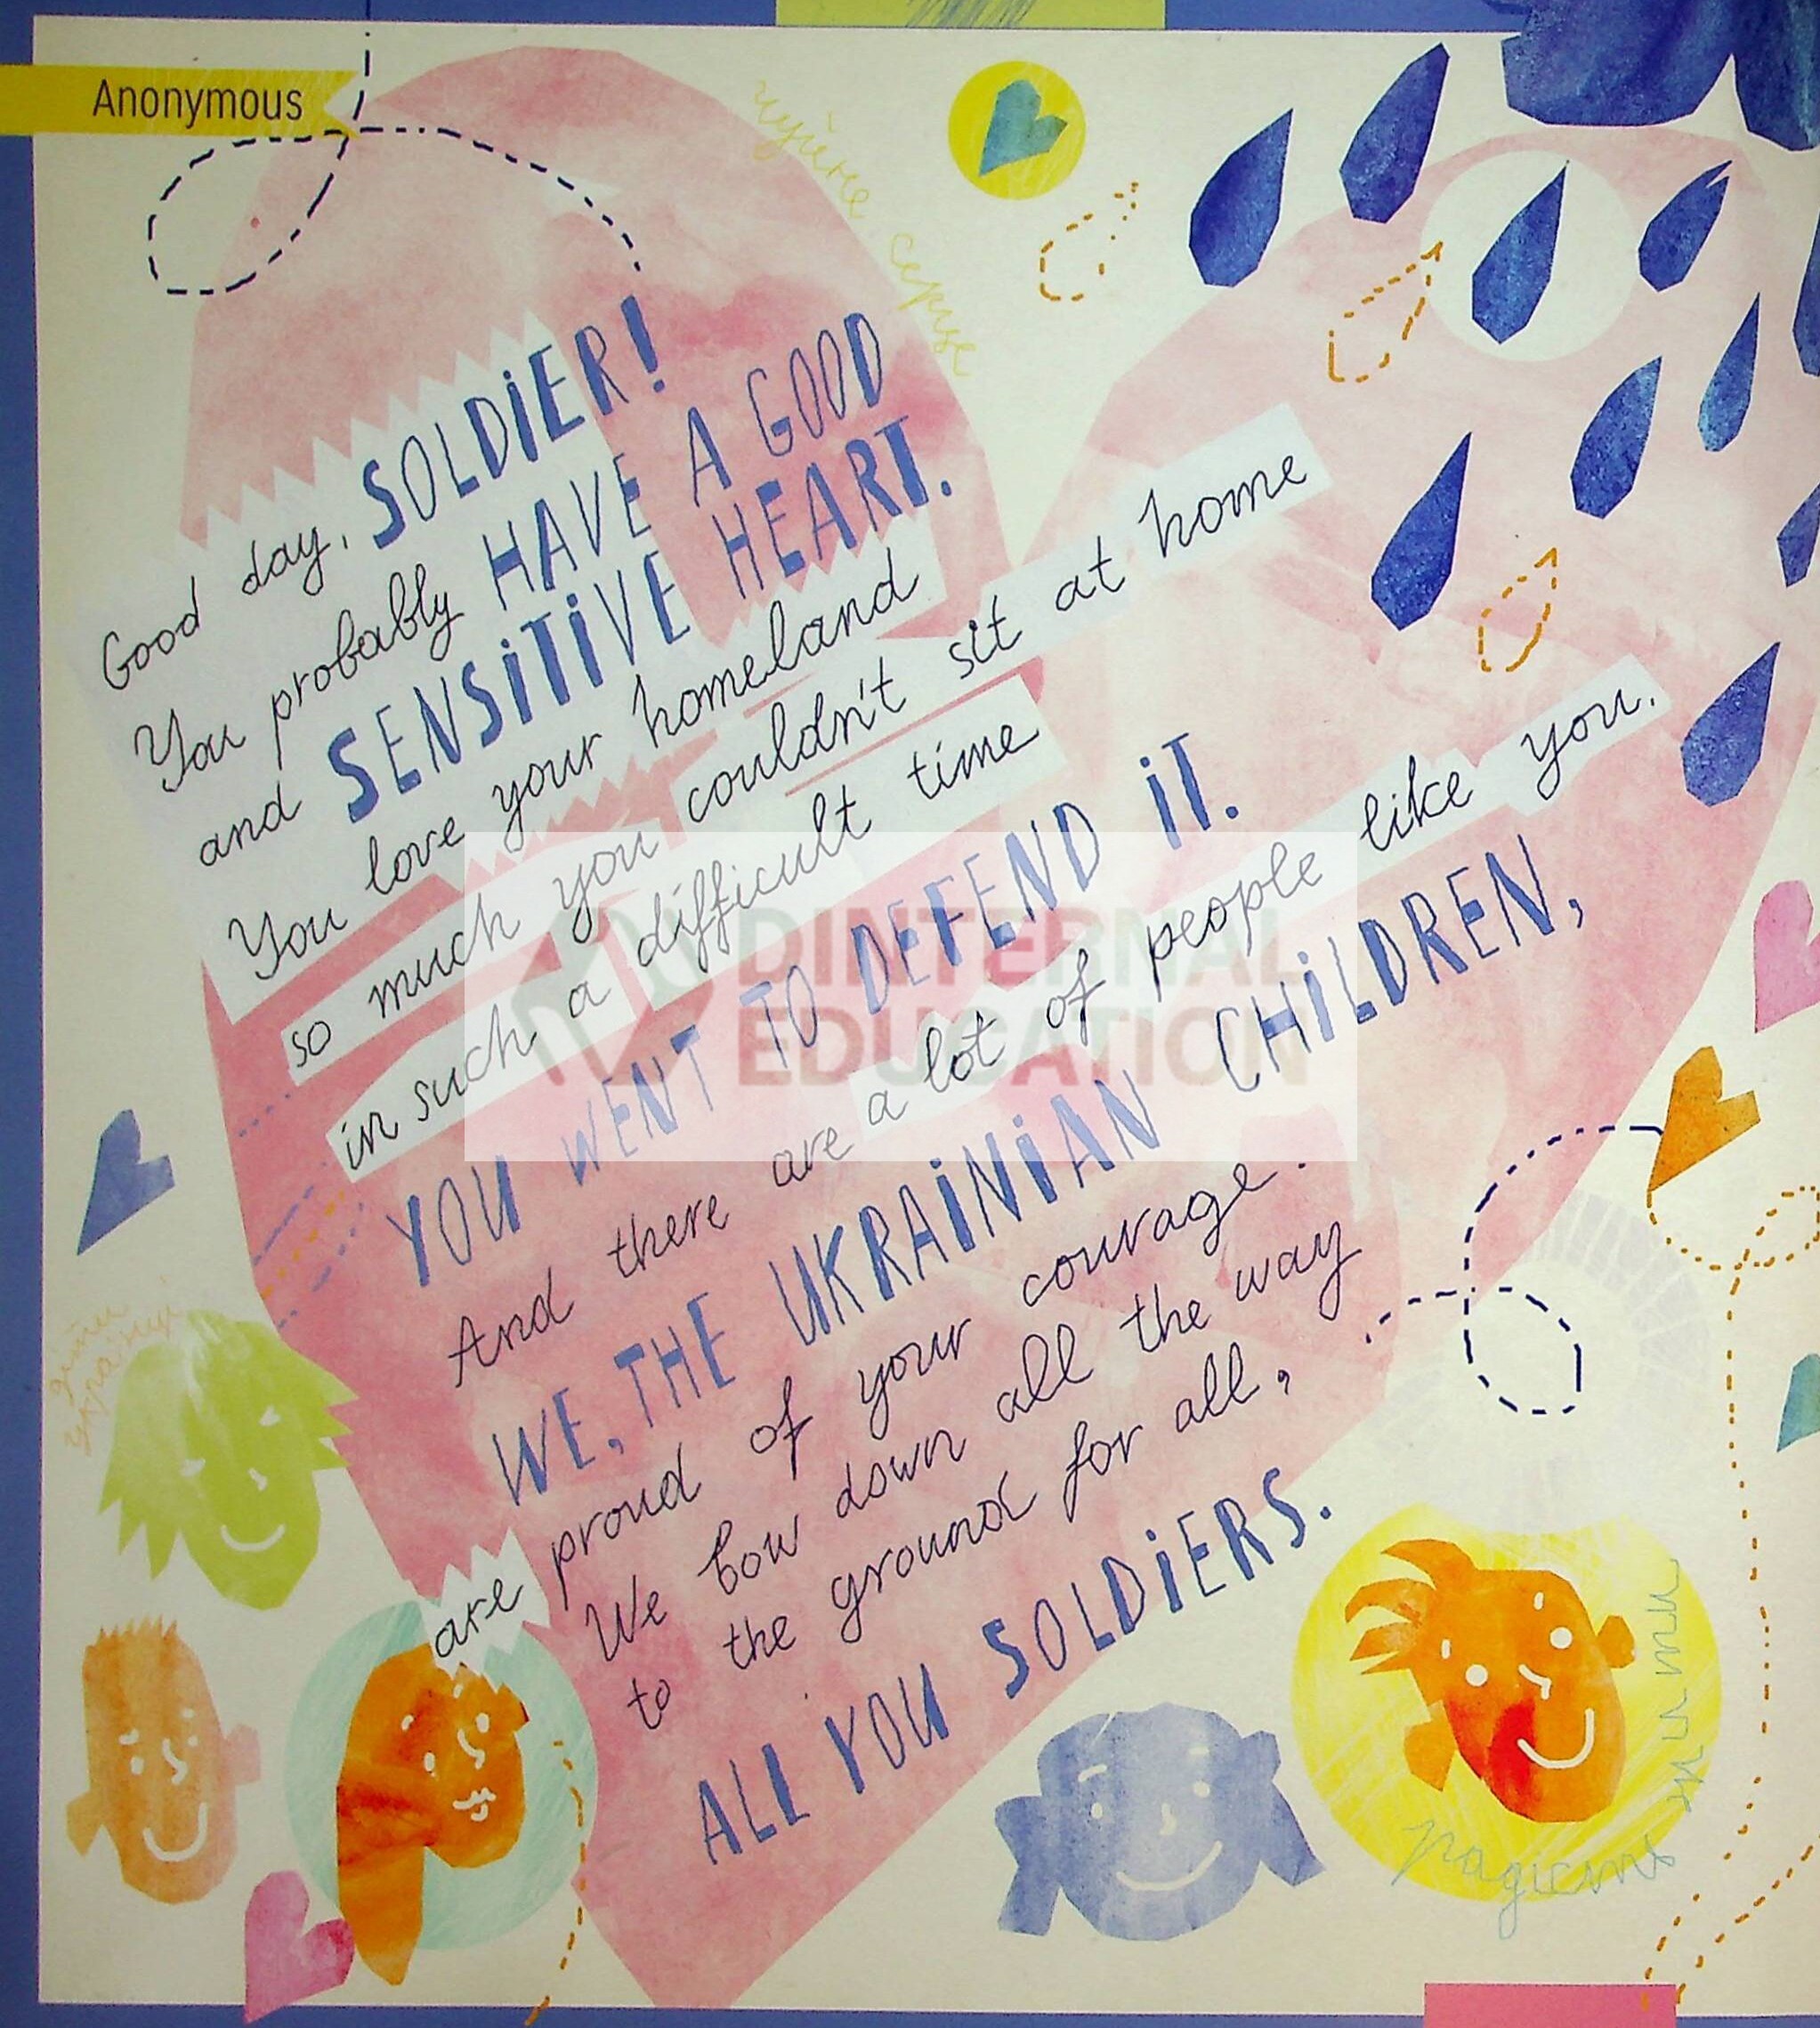 Anonymous
чуйне серце
Good day, SOLDIER!
You probably HAVE A GOOD
and SENSITIVE HEART.
You love your homeland
so much you couldn't sit at home
in such a difficult time
YOU WENT TO DEFEND IT.
And there are a lot of people like you.
WE, THE UKRAINIAN CHILDREN,
are proud of your courage.
We bow down all the way
to the ground for all,
ALL YOU SOLDIERS.
DINTERNAL
EDUCATION
діти
України